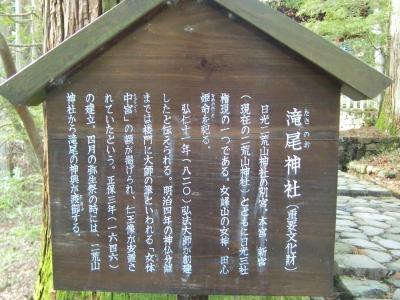 たきのお
滝尾神社(重要文化財)
日光二荒山神社の別宮。本宮、新宮
(現在の二荒山神社)とともに日光三社
権現の一つである。女峰山の女神、田心
姫命を祀る。
弘仁十一年(八二〇)弘法大師が創建
したと伝えられる。明治四年の神仏分離
までは楼門に大師の筆といわれる「女体
中宮」の額が掲げられ、仁王像が安置さ
れていたという。正保三年(一六四六)
の建立。四月の弥生祭の時には、二荒山
神社から滝尾の神輿が渡御する。